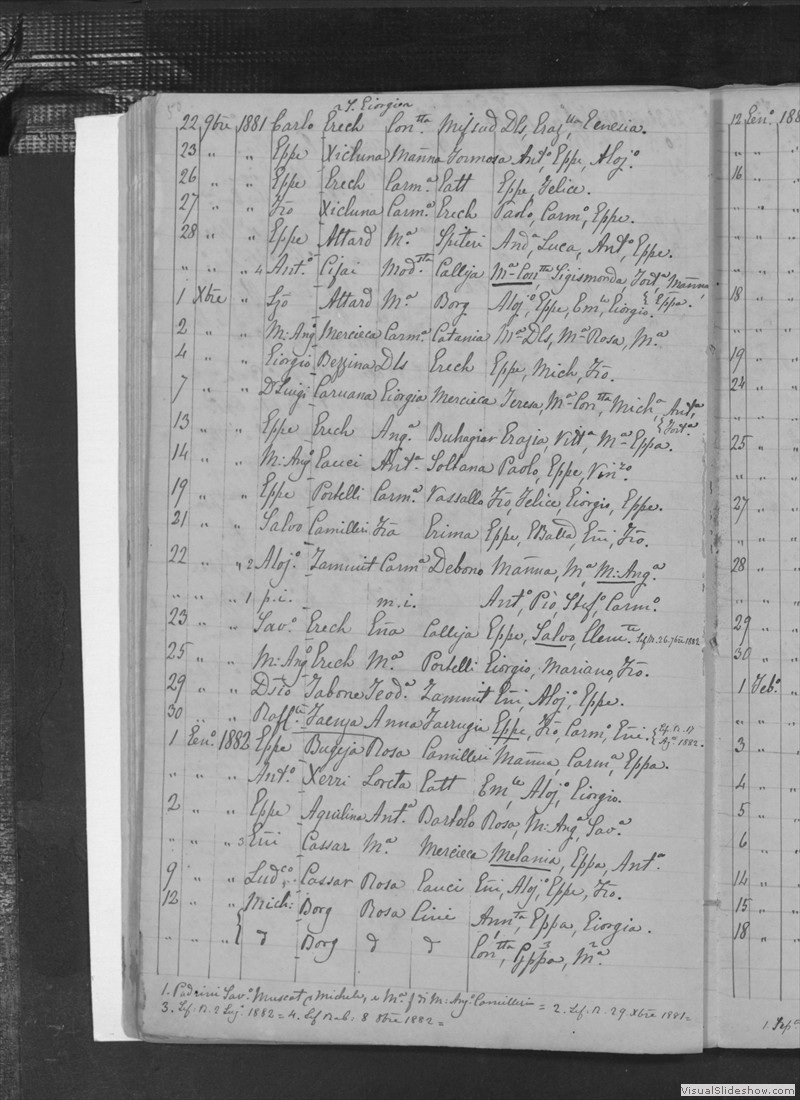 ~ T. Eiorgien
22 9bre 1881 Carlo Erech Con.tta Mifsud Dls, Eraz.lla Eenesia.
23 " " Eppe Xicluna Manna Formosa Ant.o, Eppe, Aloj.o
26 " " Eppe Erech Carm.a Catt Eppe, Felice.
27 " " Fro Xicluna Carm.a Erech Paolo, Carm.o, Eppe.
28 " " Eppe Attard M.a Spiteri And.a, Luca, Ant.o, Eppe.
" " " 4 Ant.o Cijai Mod.tta Calleja M.a Con.tta, Sigismonda, Fort.a, Manna,
1 Xbre " Ljo Attard M.a Borg Aloj.o, Eppe, Em.le, Eiorgio. { Eppa.
2 " " M: Ang.o Mercieca Carm.a Catania M.a Dls, M.a Rosa, M.a
4 " " Eiorgio Bezzina Dls Erech Eppe, Mich, Fro.
7 " " D Luigi Caruana Eiorgia Mercieca Teresa, M.a Con.tta, Mich.a, Ant.a
13 " " Eppe Erech Ang.a Buhagiar Erazia, Vitt.a, M.a Eppa. { Fort.a
14 " " M: Ang.o Eauci Ant.a Soltana Paolo, Eppe, Vin.zo
19 " " Eppe Portelli Carm.a Vassallo Fro Felice, Eiorgio, Eppe.
21 " " Salvo Camilleri Fra Erima Eppe, E Batta, Eni, Fro.
22 " " 2 Aloj.o Zammit Carm.a Debono Manna, M.a M: Ang.a
" " " 1 p.i. m.i. Ant.o, Pio, Stef.o, Carm.o
23 " " Sav.o Erech Ena Calleja Eppe, Salvo, Clem.te Lif. N. 26. 7bre 1882
25 " " M: Ang.o Erech M.a Portelli Eiorgio, Mariano, Fro.
29 " " Dsto Tabone Teod.a Zammit Eni, Aloj.o, Eppe.
30 " " Raff.le Faenza Anna Farrugia Eppe, Fro, Carm.o, Eni. { Lif. N. 17 Ag.o 1882.
1 Een.o 1882 Eppe Bugeja Rosa Camilleri Manna, Carm.a, Eppa.
" " " Ant.o Xerri Loreta Catt Em.le, Aloj.o, Eiorgio.
2 " " Eppe Aquilina Ant.a Bartolo Rosa, M: Ang.a, Sav.a
" " " 3 Eni Cassar M.a Mercieca Melania, Eppa, Ant.a
9 " " Lud.co Cassar Rosa Eauci Eni, Aloj.o, Eppe, Fro.
12 " " { Mich: Borg Rosa Cini Ann.ta, Eppa, Eiorgia.
" " " { d Borg d d Con.tta 1, Eppa 3, M.a 2
1. Padrini Sav.o Muscat f Michele, e M.a f di M: Ang.o Camilleri = 2. Lif. N. 29. Xbre 1881 =
3. Lif. N. 2 Lug. 1882 = 4. Lif Rab. 8 8bre 1882 =
12 Een.o 188
" "
16 "
" "
" "
" "
18 "
" "
19 "
24 "
" "
25 "
" "
27 "
" "
28 "
" "
29 "
30 "
1 Feb.o
" "
3 "
4 "
5 "
6 "
14 "
15 "
18 "
VisualSlideshow.com